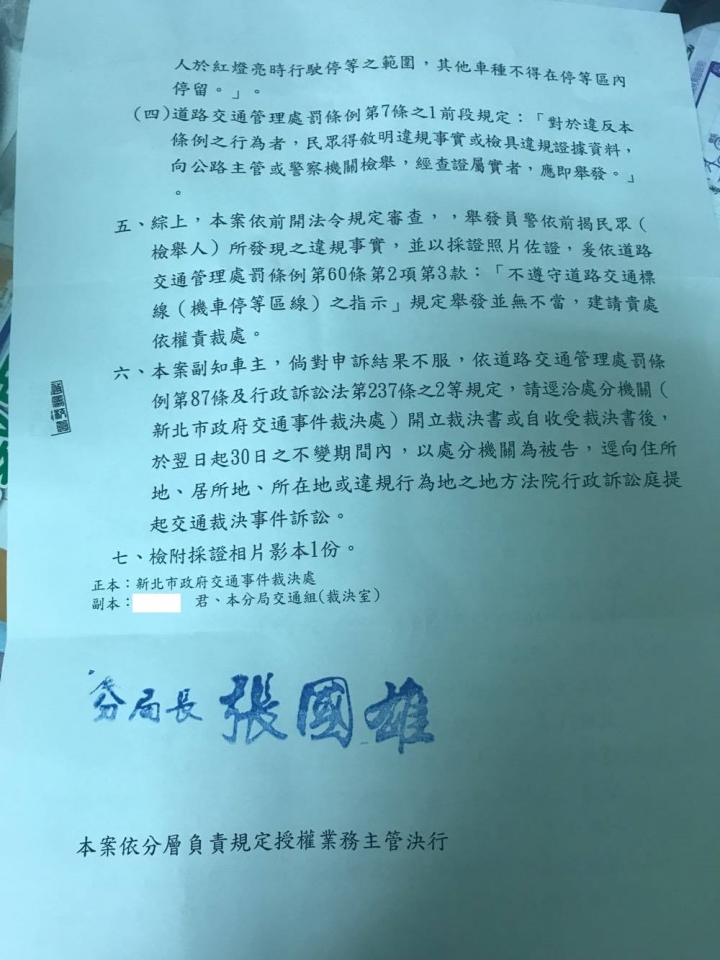 人於紅燈亮時行駛停等之範圍，其他車種不得在停等區內
停留。」。
(四)道路交通管理處罰條例第7條之1前段規定：「對於違反本
條例之行為者，民眾得敘明違規事實或檢具違規證據資料，
向公路主管或警察機關檢舉，經查證屬實者，應即舉發。」
。
五、綜上，本案依前開法令規定審查，，舉發員警依前揭民眾（
檢舉人）所發現之違規事實，並以採證照片佐證，爰依道路
交通管理處罰條例第60條第2項第3款：「不遵守道路交通標
線（機車停等區線）之指示」規定舉發並無不當，建請貴處
依權責裁處。
六、本案副知車主，倘對申訴結果不服，依道路交通管理處罰條
例第87條及行政訴訟法第237條之2等規定，請逕洽處分機關（
新北市政府交通事件裁決處）開立裁決書或自收受裁決書後，
於翌日起30日之不變期間內，以處分機關為被告，逕向住所
地、居所地、所在地或違規行為地之地方法院行政訴訟庭提
起交通裁決事件訴訟。
七、檢附採證相片影本1份。
正本：新北市政府交通事件裁決處
副本：君、本分局交通組(裁決室)
分局長 張國雄
本案依分層負責規定授權業務主管決行